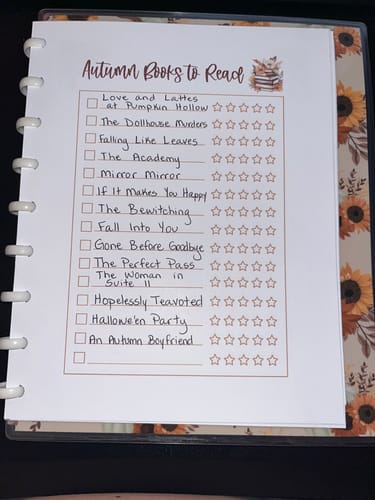 Autumn Books to Read
Love and Lattes
at Pumpkin Hollow
The Dollhouse Murders
Falling Like Leaves
The Academy
Mirror Mirror
If It Makes You Happy
The Bewitching
Fall Into You
Gone Before Goodbye
The Perfect Pass
The Woman in
Suite 11
Hopelessly Teavoted
Hallowe'en Party
An Autumn Boyfriend